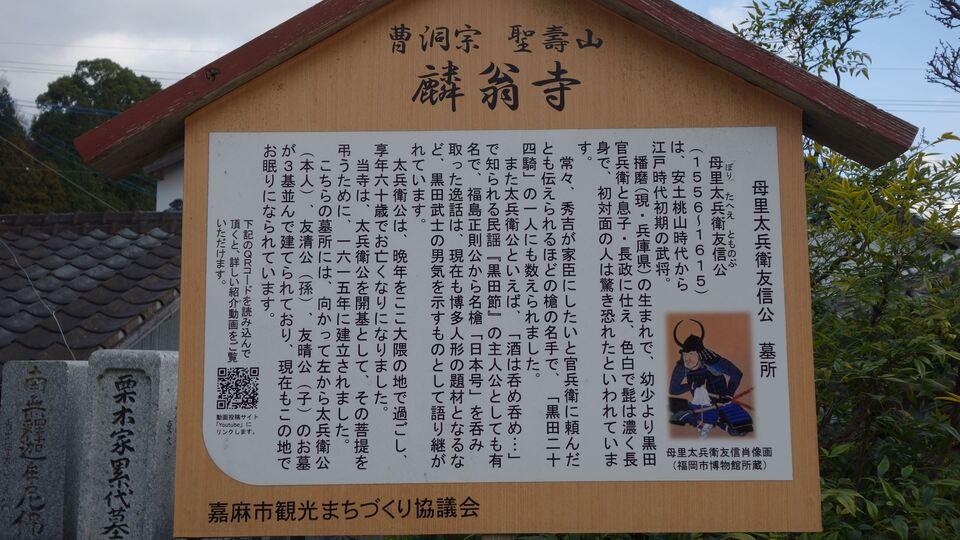 曹洞宗 聖壽山
麟翁寺
母里太兵衛友信公 墓所
ぼり たへえ とものぶ
母里太兵衛友信公
(1556～1615)
は、安土桃山時代から
江戸時代初期の武将。
播磨(現・兵庫県)の生まれで、幼少より黒田
官兵衛と息子・長政に仕え、色白で髭は濃く長
身で、初対面の人は驚き恐れたといわれていま
す。
常々、秀吉が家臣にしたいと官兵衛に頼んだ
とも伝えられるほどの槍の名手で、「黒田二十
四騎」の一人にも数えられました。
また太兵衛公といえば、「酒は呑め呑め…」
で知られる民謡『黒田節』の主人公としても有
名で、福島正則公から名槍「日本号」を呑み
取った逸話は、現在も博多人形の題材となるな
ど、黒田武士の男気を示すものとして語り継が
れています。
太兵衛公は、晩年をここ大隈の地で過ごし、
享年六十歳でお亡くなりになりました。
当寺は、太兵衛公を開基として、その菩提を
弔うために、一六一五年に建立されました。
こちらの墓所には、向かって左から太兵衛公
(本人)、友清公(孫)、友晴公(子)のお墓
が３基並んで建てられており、現在もこの地で
お眠りになられています。
下記のQRコードを読み込んで
頂くと、詳しい紹介動画をご覧
いただけます。
動画投稿サイト
「Youtube」に
リンクします。
母里太兵衛友信肖像画
(福岡市博物館所蔵)
嘉麻市観光まちづくり協議会
栗木家累代墓